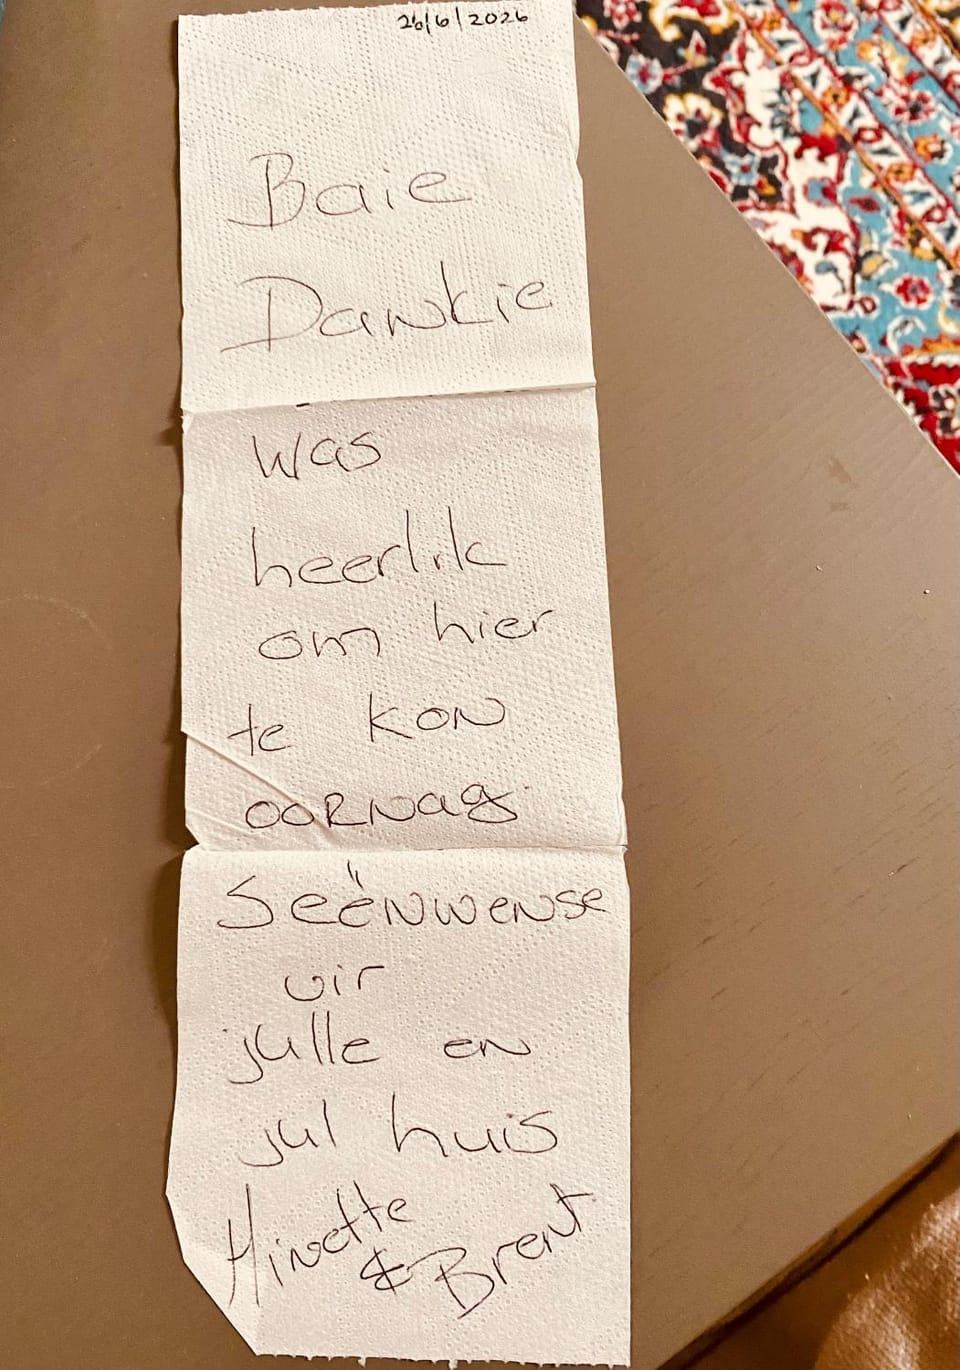 26/6/2026
Baie
Dankie
Was
heerlik
om hier
te kon
oornag.
Seënwense
vir
julle en
jul huis
Minette
& Brent